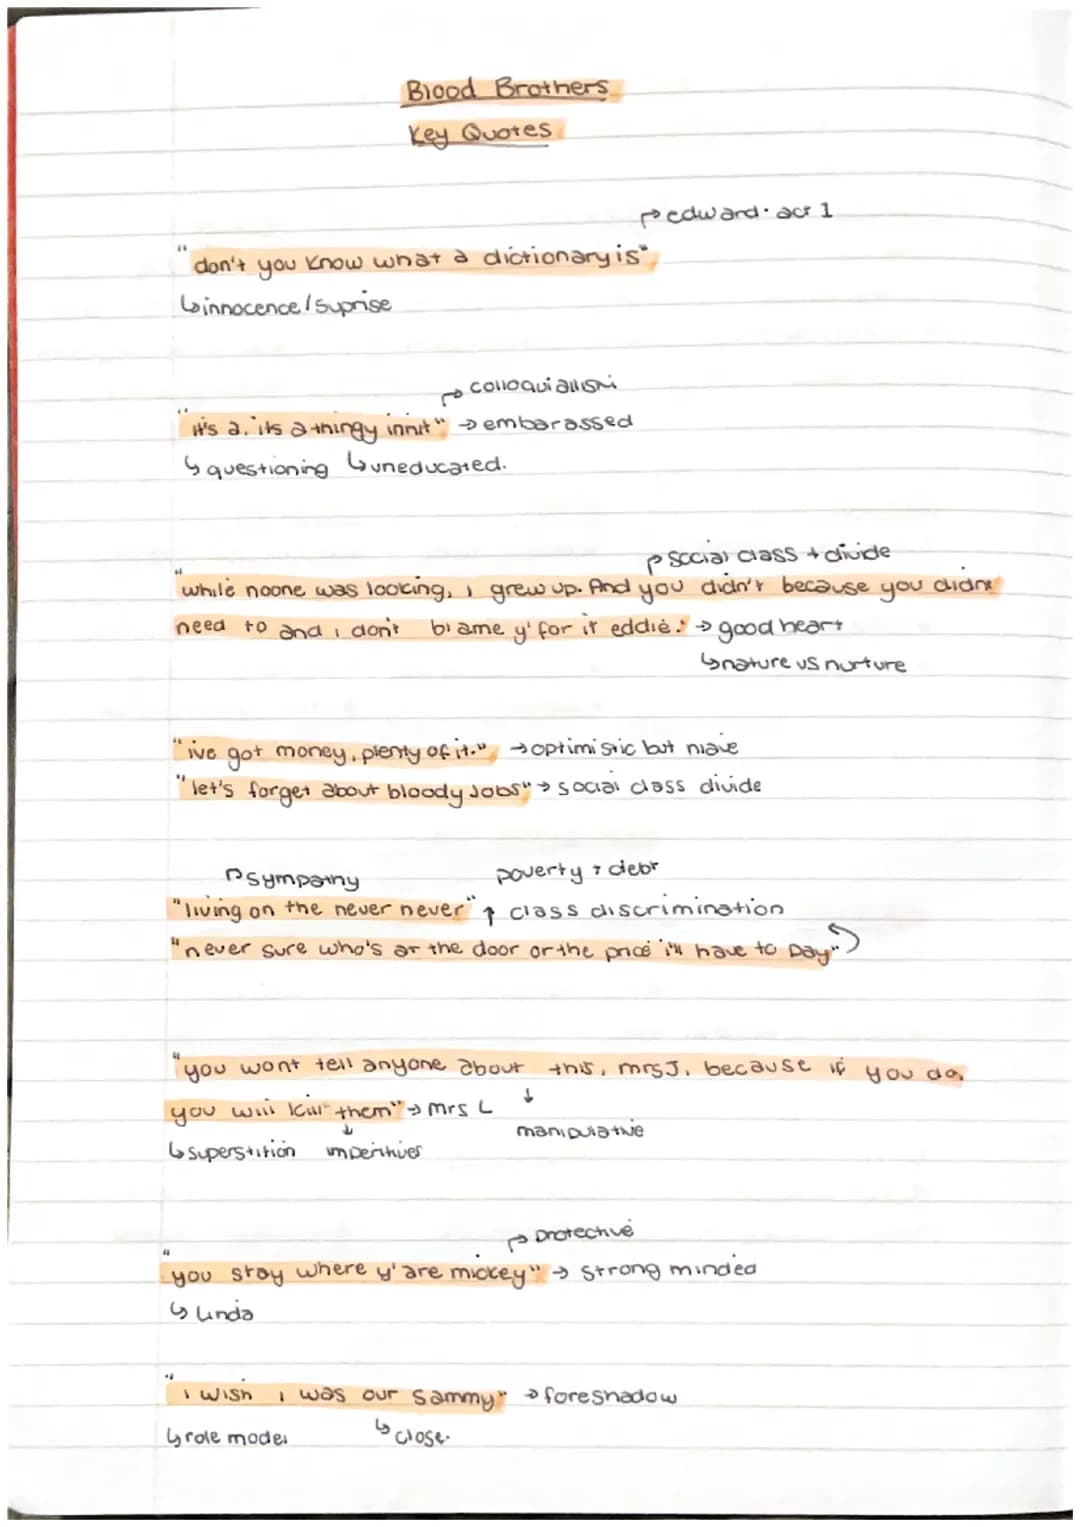 Blood Brothers
Key Quotes
↱ edward. act 1
"don't you know what a dictionary is"
↳ innocence / suprise
↱ colloquiallism
"it's a, its a thingy innit" → embarassed
↳ questioning ↳ uneducated.
↱ social class + divide
"while noone was looking, i grew up. And you didn't because you didnt
need to and i don't blame y' for it eddie." → good heart
↳ nature vs nurture
"ive got money, plenty of it." → optimistic but niave
"let's forget about bloody jobs" → social class divide
↱ sympathy poverty + debt
"living on the never never" ↑ class discrimination
"never sure who's at the door or the price i'll have to pay"
"you wont tell anyone about this, mrs J, because if you do,
you will kill them" → mrs L ↓ manipulative
↳ superstition ↓ imperitives
↱ protective
"you stay where y' are mickey" → strong minded
↳ Linda
"i wish i was our sammy" → foreshadow
↳ role model ↳ close.